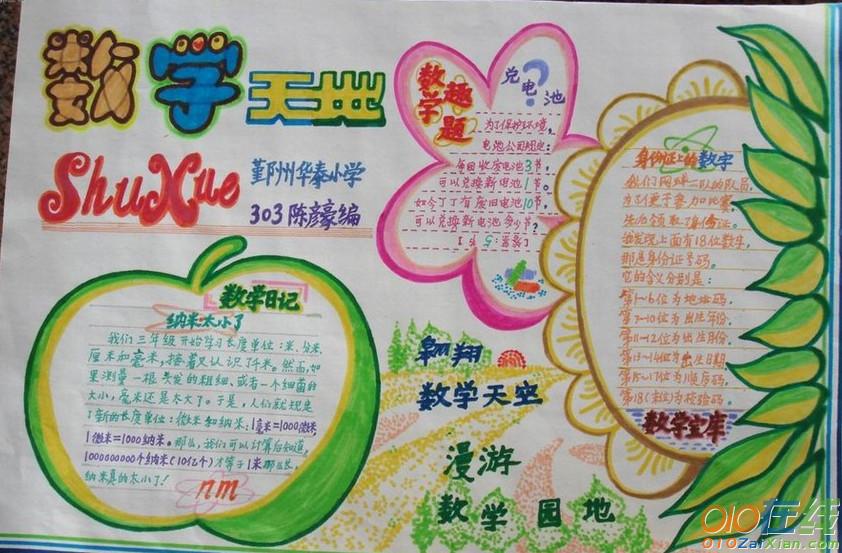 数学天地
ShuXue
鄞州华泰小学
303 陈彦豪编
数学
趣题
兑电池
?
为了保护环境,
电池公司规定:
每回收废电池3节,
可以兑换新电池1节。
如今丁丁有废旧电池10节,
可以兑换新电池多少节?
[答案:5节]
身份证上的数字
我们网球二队的队员,
为了便于参加比赛,
先后领取了身份证。
我发现上面有18位数字,
那是身份证号码。
它的含义分别是:
第1-6位为地址码。
第7-10位为出生年份。
第11-12位为出生月份。
第13-14位为出生日期。
第15-17位为顺序码。
第18(末)位为校验码。
数学宝库
数学日记
纳米太小了
我们三年级开始学习长度单位:米、分米、
厘米和毫米,接着又认识了千米。然而,如
果测量一根头发的粗细、或者一个细菌的
大小,毫米还是太大了。于是,人们就规定
了新的长度单位:微米和纳米:1毫米=1000微米,
1微米=1000纳米。那么,我们可以计算后知道,
1000000000个纳米(10亿个)才等于1米那么长,
纳米真的太小了!
nm
翱翔
数学天空
漫游
数学园地
010在线
010ZaiXian.com